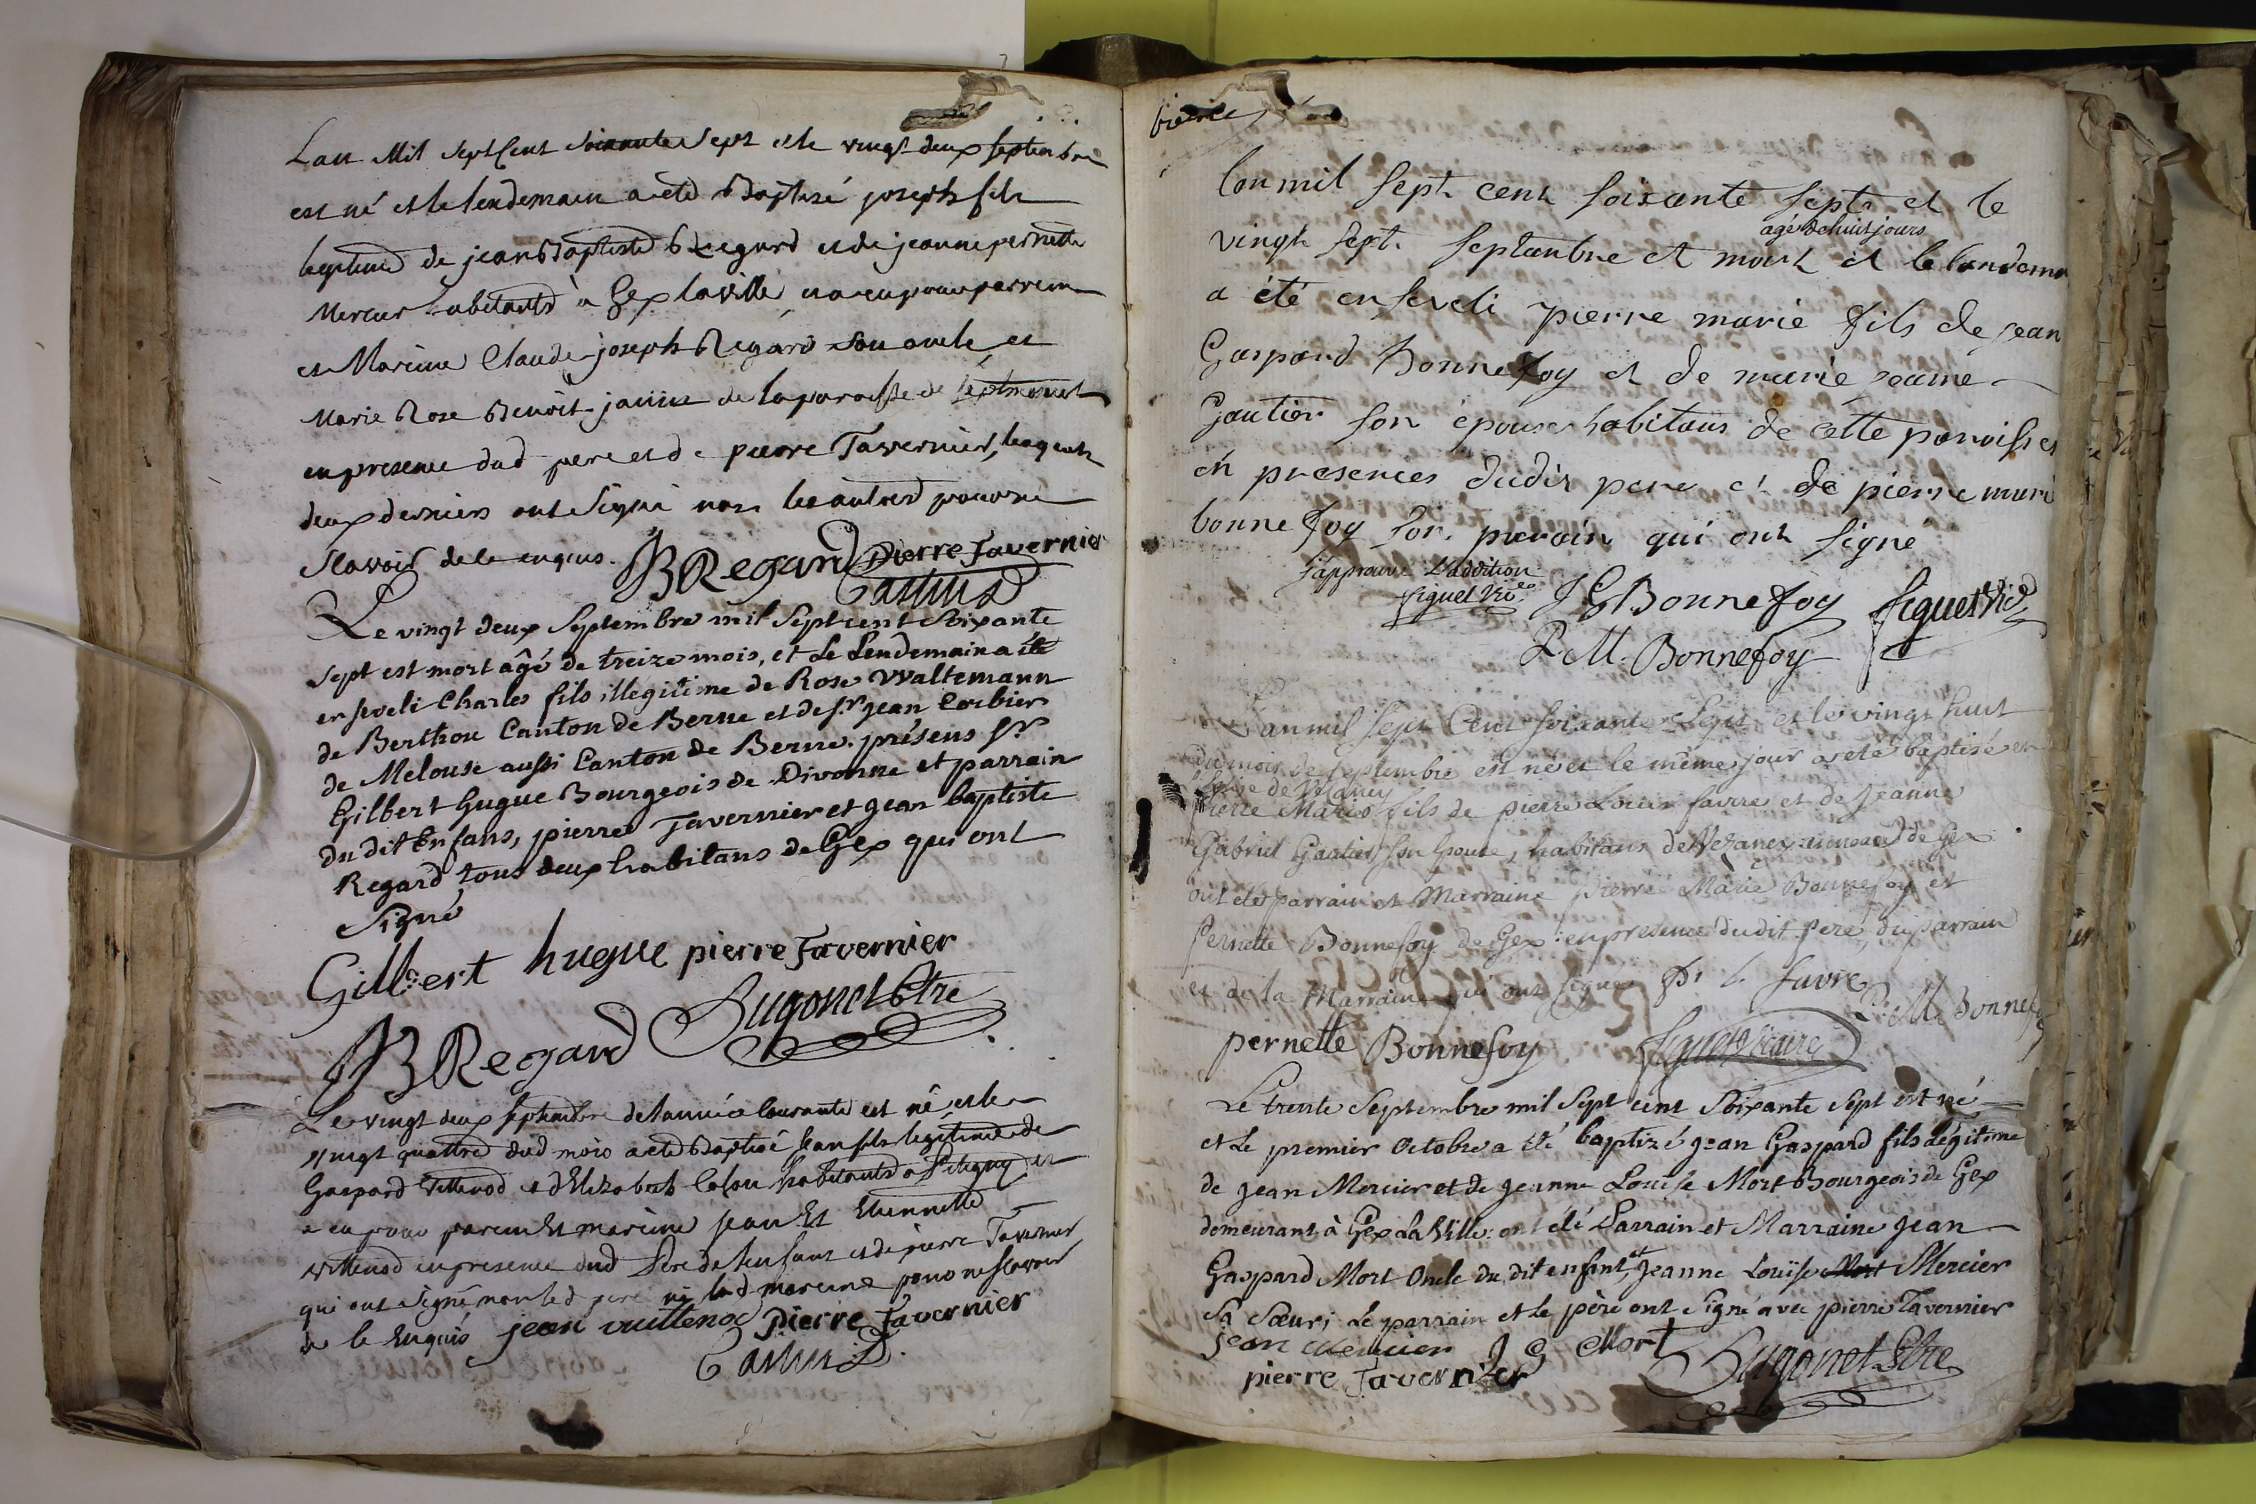 Lan Mil Sept Cent Soixante Sept et le vingt deux Septembre
est né et le lendemain a eté Baptisé joseph fils
legitime de jean Baptiste Regard et de jeanne pernette
Mercier habitants à Gex la ville, et a eu pour parrein
et Mareine Claude joseph Regard son oncle et
Marie Rose Benoit jannie de la paroisse de Septmoncel
en presence dud pere et de pierre Tavernier, lesquels
deux derniers ont Signé non les autres pour ne
Scavoir de ce enquis. JB Regard Pierre Tavernier
Le vingt deux Septembre mil Sept cent Soixante
sept est mort âgé de treize mois, et Le Lendemain a été
enseveli Charles fils illegitime de Rose Waltemann
de Berthou Canton de Berne et de Sr. Jean Corbier
de Melouse aussi Canton de Berne. présens Sr
Gilbert hugue Bourgeois de Divonne et parrain
du dit Enfans, pierre Tavernier et Jean baptiste
Regard tous deux habitans de Gex qui ont
Signé
Gilbert hugue pierre Tavernier
JB Regard Hugonet Ptre
Le vingt deux septembre de lannée Courante est né et le
vingt quattre dud mois a eté Baptisé Jean fils legitime de
Gaspard Vittenod et dElizabeth habitants a et
a eu pour parein Et mareine Jean Et Etiennette
Vittenod en presence dud Pere de lenfant et de pierre Tavernier
qui ont Signé non led pere ni lad mareine pour ne Scavoir
de ce Enquis jean vuittenod Pierre Tavernier
Lan mil sept cent soixante sept et le
agé de huit jours
vingt sept septembre et mort et le landemn
a été enseveli pierre marie fils de jean
Gaspard Bonnefoy et de marie jeanne
Gautier son épouse habitans de cette paroisse et
en presences dudit pere et de pierre mari
bonnefoy son parain qui ont signé
japprouve l'addition
figuet Vic. JG Bonnefoy figuet Vic
P. M. Bonnefoy
Lan mil sept Cent soixante Sept et le vingt huit
du mois de septembre est né et le même jour a eté baptisé en
l'Eglise de Vezancy
Pierre Marie fils de pierre Louis favre et de Jeanne
Gabriel Gautier son Epouse, habitans de Vezancy annexe de Gex
ont été parrain et Marraine pierre Marie Bonnefoy et
Pernette Bonnefoy de Gex: en presence dudit Pere, du parrain
et de la Marraine qui ont signé Pr L. favre
P. M. Bonnefoy
pernette Bonnefoy figuet vicaire
Le trente Septembre mil Sept cent Soixante Sept est né
et Le premier Octobre a été baptizé Jean Gaspard fils légitime
de Jean Mercier et de Jeanne Louise Mort Bourgeois de Gex
demeurant à Gex La Ville: ont été Parrain et Marraine Jean
Gaspard Mort Oncle du dit enfant, et Jeanne Louise Mort Mercier
Sa Sœur; Le parrain et le père ont Signé avec pierre Tavernier
jean Mercier J G Mort
pierre Tavernier Hugonet Ptre